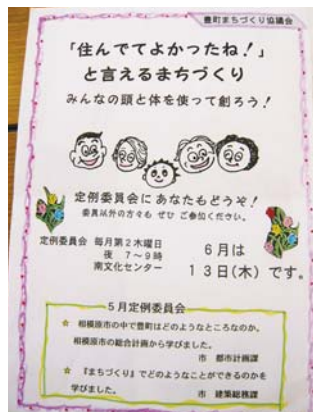 豊町まちづくり協議会
「住んでてよかったね!」
と言えるまちづくり
みんなの頭と体を使って創ろう!
定例委員会にあなたもどうぞ!
委員以外の方々も ぜひ ご参加ください。
定例委員会 毎月第2木曜日
夜 7~9時
南文化センター
6月は
13日(木) です。
5月定例委員会
☆ 相模原市の中で豊町はどのようなところなのか。
相模原市の総合計画から学びました。
市 都市計画課
☆ 『まちづくり』でどのようなことができるのかを
学びました。
市 建築総務課